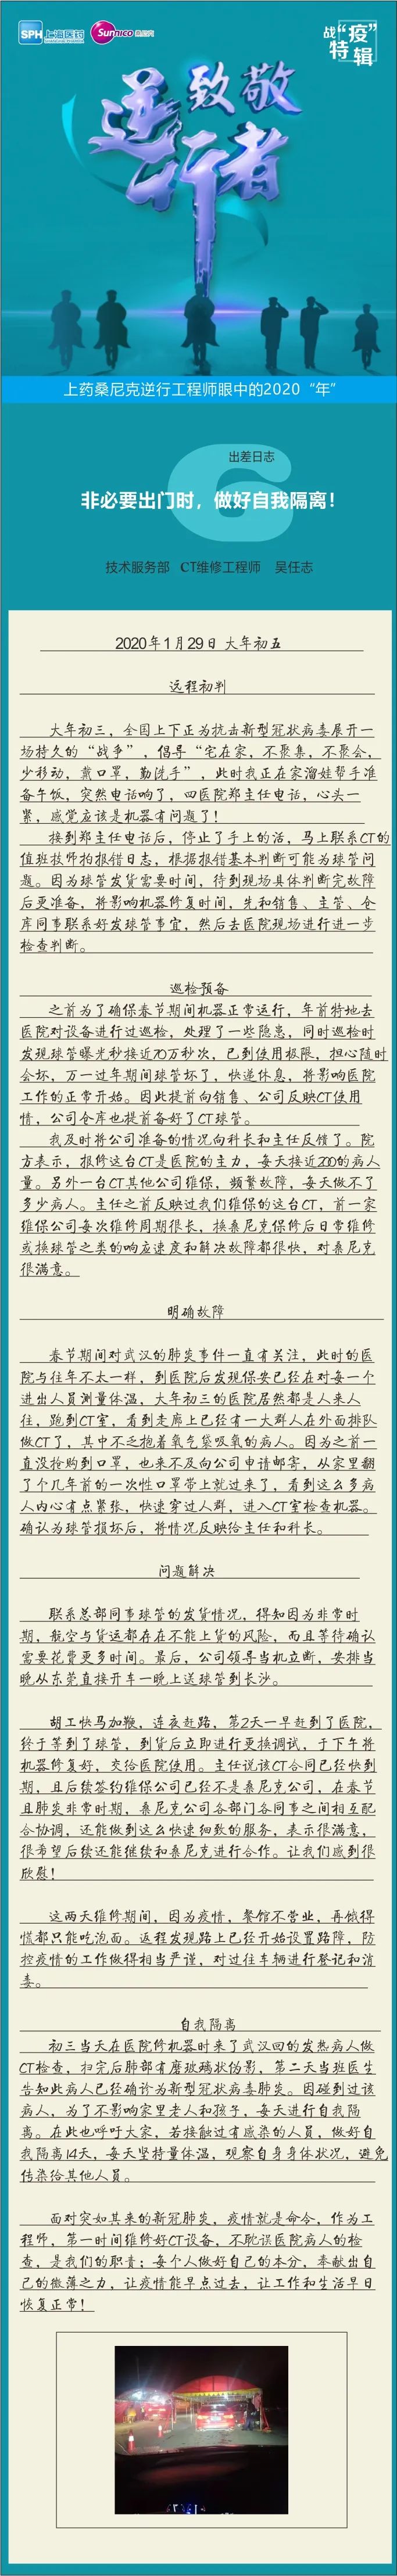 SPH 上海医药 Sumico 桑尼克
战“疫”
特辑
致敬
逆行者
上药桑尼克逆行工程师眼中的2020“年”
6
出差日志
非必要出门时，做好自我隔离！
技术服务部 CT维修工程师 吴任志
2020年1月29日 大年初五
远程初判
大年初三，全国上下正为抗击新型冠状病毒展开一
场持久的“战争”，倡导“宅在家，不聚集，不聚会，
少移动，戴口罩，勤洗手”，此时我正在家溜娃帮手准
备午饭，突然电话响了，四医院郑主任电话，心头一
紧，感觉应该是机器有问题了！
接到郑主任电话后，停止了手上的活，马上联系CT的
值班技师拍报错日志，根据报错基本判断可能为球管问
题。因为球管发货需要时间，待到现场具体判断完故障
后更准备，将影响机器修复时间，先和销售、主管、仓
库同事联系好发球管事宜，然后去医院现场进行进一步
检查判断。
巡检预备
之前为了确保春节期间机器正常运行，年前特地去
医院对设备进行过巡检，处理了一些隐患，同时巡检时
发现球管曝光秒接近70万秒次，已到使用极限，担心随时
会坏，万一过年期间球管坏了，快递休息，将影响医院
工作的正常开始。因此提前向销售、公司反映CT使用
情，公司仓库也提前备好了CT球管。
我及时将公司准备的情况向科长和主任反馈了。院
方表示，报修这台CT是医院的主力，每天接近200的病人
量。另外一台CT其他公司维保，频繁故障，每天做不了
多少病人。主任之前反映过我们维保的这台CT，前一家
维保公司每次维修周期很长，换桑尼克保修后日常维修
或换球管之类的响应速度和解决故障都很快，对桑尼克
很满意。
明确故障
春节期间对武汉的肺炎事件一直有关注，此时的医
院与往年不太一样，到医院后发现保安已经在对每一个
进出人员测量体温，大年初三的医院居然都是人来人
往，跑到CT室，看到走廊上已经有一大群人在外面排队
做CT了，其中不乏抱着氧气袋吸氧的病人。因为之前一
直没抢购到口罩，也来不及向公司申请邮寄，从家里翻
了个几年前的一次性口罩带上就过来了，看到这么多病
人内心有点紧张，快速穿过人群，进入CT室检查机器。
确认为球管损坏后，将情况反映给主任和科长。
问题解决
联系总部同事球管的发货情况，得知因为非常时
期，航空与货运都存在不能上货的风险，而且等待确认
需要花费更多时间。最后，公司领导当机立断，安排当
晚从东莞直接开车一晚上送球管到长沙。
胡工快马加鞭，连夜赶路，第2天一早赶到了医院，
终于等到了球管，到货后立即进行更换调试，于下午将
机器修复好，交给医院使用。主任说该CT合同已经快到
期，且后续签约维保公司已经不是桑尼克公司，在春节
且肺炎非常时期，桑尼克公司各部门各同事之间相互配
合协调，还能做到这么快速细致的服务，表示很满意，
很希望后续还能继续和桑尼克进行合作。让我们感到很
欣慰！
这两天维修期间，因为疫情，餐馆不营业，再饿得
慌都只能吃泡面。返程发现路上已经开始设置路障，防
控疫情的工作做得相当严谨，对过往车辆进行登记和消
毒。
自我隔离
初三当天在医院修机器时来了武汉回的发热病人做
CT检查，扫完后肺部有磨玻璃状伪影，第二天当班医生
告知此病人已经确诊为新型冠状病毒肺炎。因碰到过该
病人，为了不影响家里老人和孩子，每天进行自我隔
离。在此也呼吁大家，若接触过有感染的人员，做好自
我隔离14天，每天坚持量体温，观察自身身体状况，避免
传染给其他人员。
面对突如其来的新冠肺炎，疫情就是命令，作为工
程师，第一时间维修好CT设备，不耽误医院病人的检
查，是我们的职责；每个人做好自己的本分，奉献出自
己的微薄之力，让疫情能早点过去，让工作和生活早日
恢复正常！